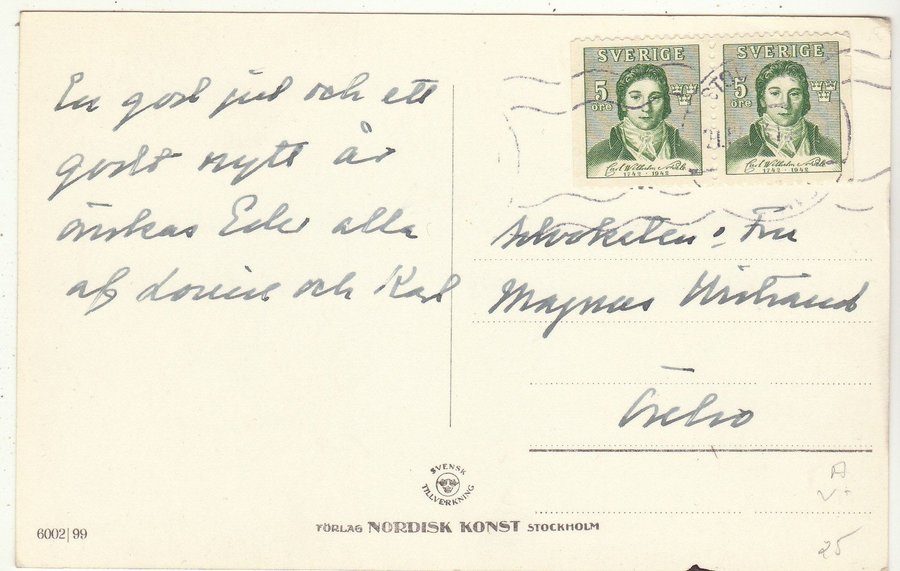 En god jul och ett
godt nytt år
önskas Eder alla
af Louise och Karl
SVERIGE
5
öre
Carl Wilhelm Scheele
1742 - 1942
SVERIGE
5
öre
Carl Wilhelm Scheele
1742 - 1942
Advokaten o Fru
Magnus
Örebro
SVENSK
TILLVERKNING
FÖRLAG NORDISK KONST STOCKHOLM
6002|99
A
V+
25